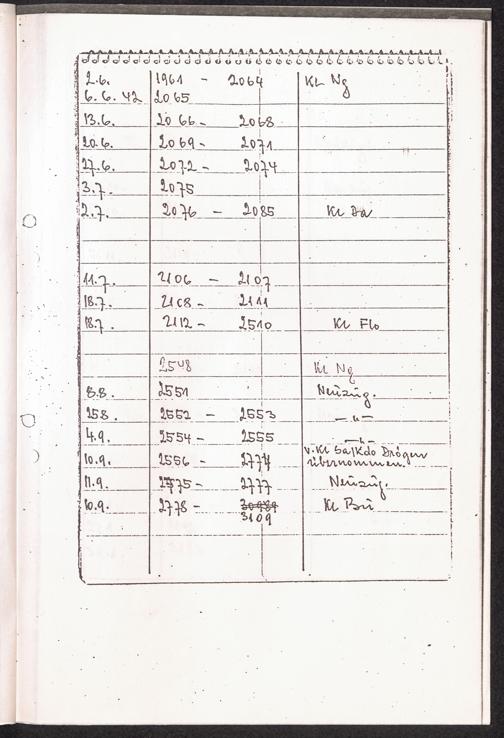 2.6. 1961 - 2064 KL Ng
6.6.42 2065
13.6. 2066 - 2068
20.6. 2069 - 2071
27.6. 2072 - 2074
3.7. 2075
2.7. 2076 - 2085 KL Da
11.7. 2106 - 2107
18.7. 2108 - 2111
18.7. 2112 - 2510 KL Flo
2548 KL Ng
8.8. 2551 Neuzug.
25.8. 2552 - 2553 — " —
4.9. 2554 - 2555 — " —
10.9. 2556 - 2774 v. KL Sa/Kdo Drögen
übernommen.
11.9. 2775 - 2777 Neuzug.
10.9. 2778 - KL Bu
3109